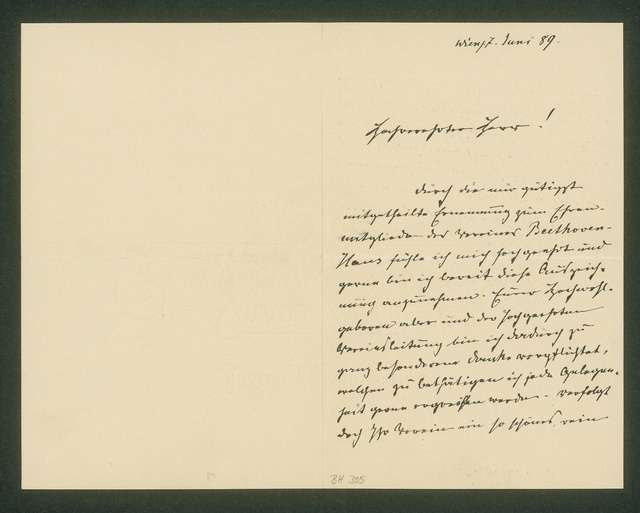 Wien 7. Juni 89.
Hochverehrter Herr!
Durch die mir gütigst
mitgetheilte Ernennung zum Ehren-
mitgliede des Vereines Beethoven-
Haus fühle ich mich hochgeehrt und
gerne bin ich bereit diese Auszeich-
nung anzunehmen. Euer Hochwohl-
geboren aber und der hochgeehrten
Vereinsleitung bin ich dadurch zu
ganz besonderem Danke verpflichtet,
welchen zu bethätigen ich jede Gelegen-
heit gerne ergreiffen werde. Verfolgt
doch Ihr Verein ein so schönes, rein
BH 305